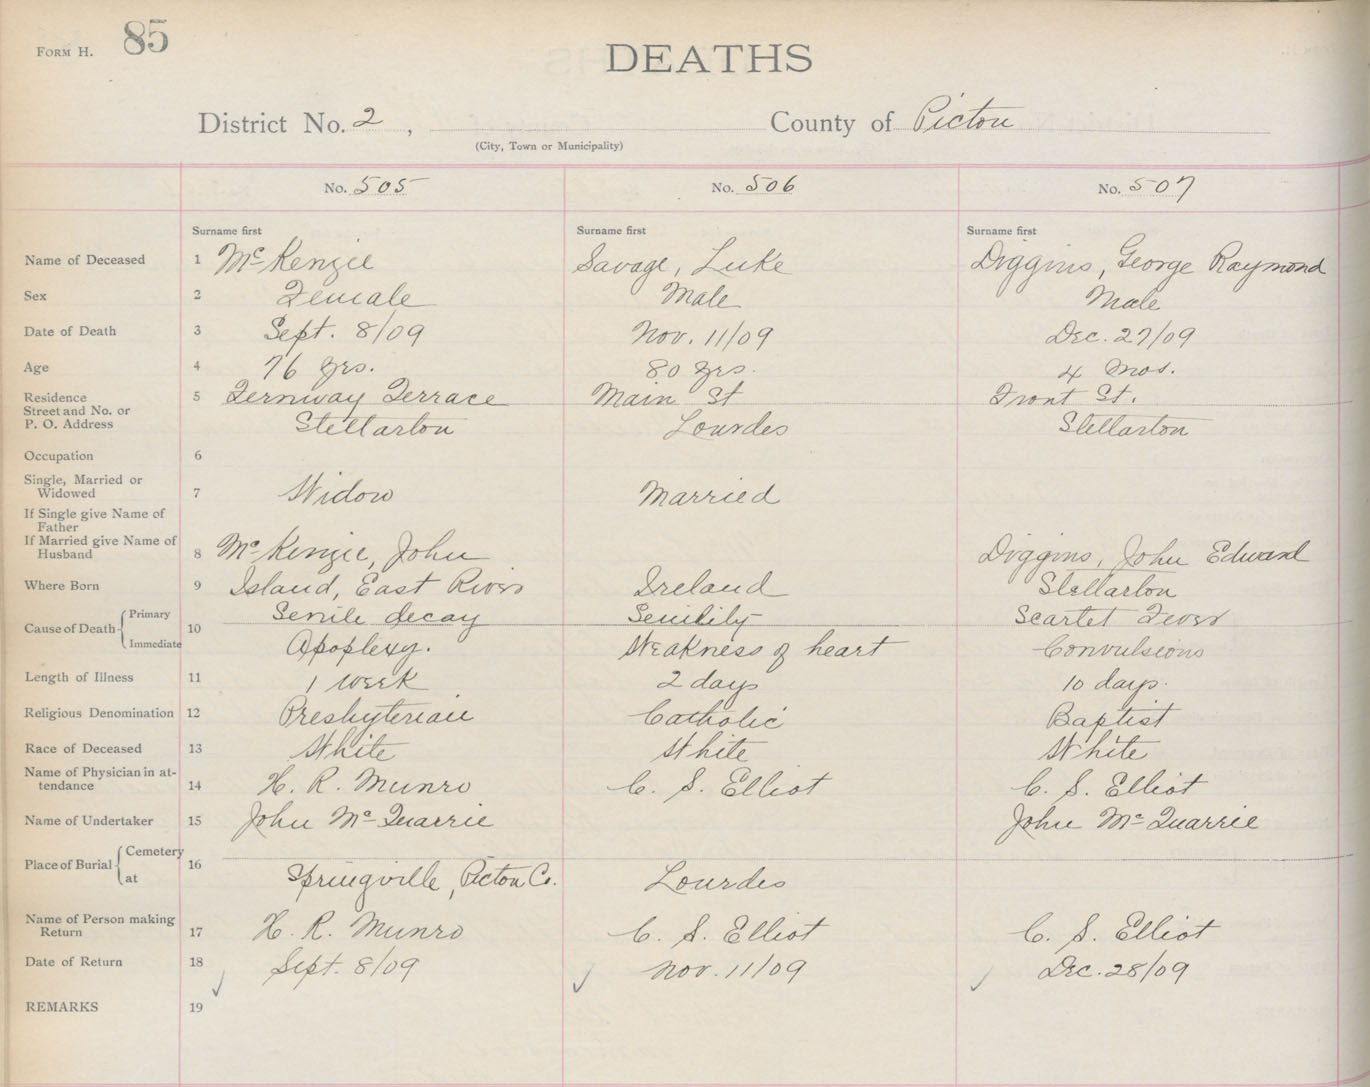 Form H. 85
DEATHS
District No. 2 , County of Pictou
(City, Town or Municipality)
No. 505 No. 506 No. 507
Surname first Surname first Surname first
Name of Deceased 1 McKenzie Savage, Luke Diggins, George Raymond
Sex 2 Female Male Male
Date of Death 3 Sept. 8/09 Nov. 11/09 Dec. 27/09
Age 4 76 yrs. 80 yrs. 4 mos.
Residence 5 Fernway Terrace Main St Front St.
Street and No. or
P. O. Address Stellarton Lourdes Stellarton
Occupation 6
Single, Married or
Widowed 7 Widow Married
If Single give Name of
Father
If Married give Name of
Husband 8 McKenzie, John Diggins, John Edward
Where Born 9 Island, East River Ireland Stellarton
Cause of Death Primary 10 Senile decay Senility Scarlet Fever
Immediate Apoplexy. Weakness of heart Convulsions
Length of Illness 11 1 week 2 days 10 days.
Religious Denomination 12 Presbyterian Catholic Baptist
Race of Deceased 13 White White White
Name of Physician in at-
tendance 14 H. R. Munro C. S. Elliot C. S. Elliot
Name of Undertaker 15 John McQuarrie John McQuarrie
Place of Burial Cemetery 16
at Springville, Pictou Co. Lourdes
Name of Person making
Return 17 H. R. Munro C. S. Elliot C. S. Elliot
Date of Return 18 Sept. 8/09 Nov. 11/09 Dec. 28/09
REMARKS 19